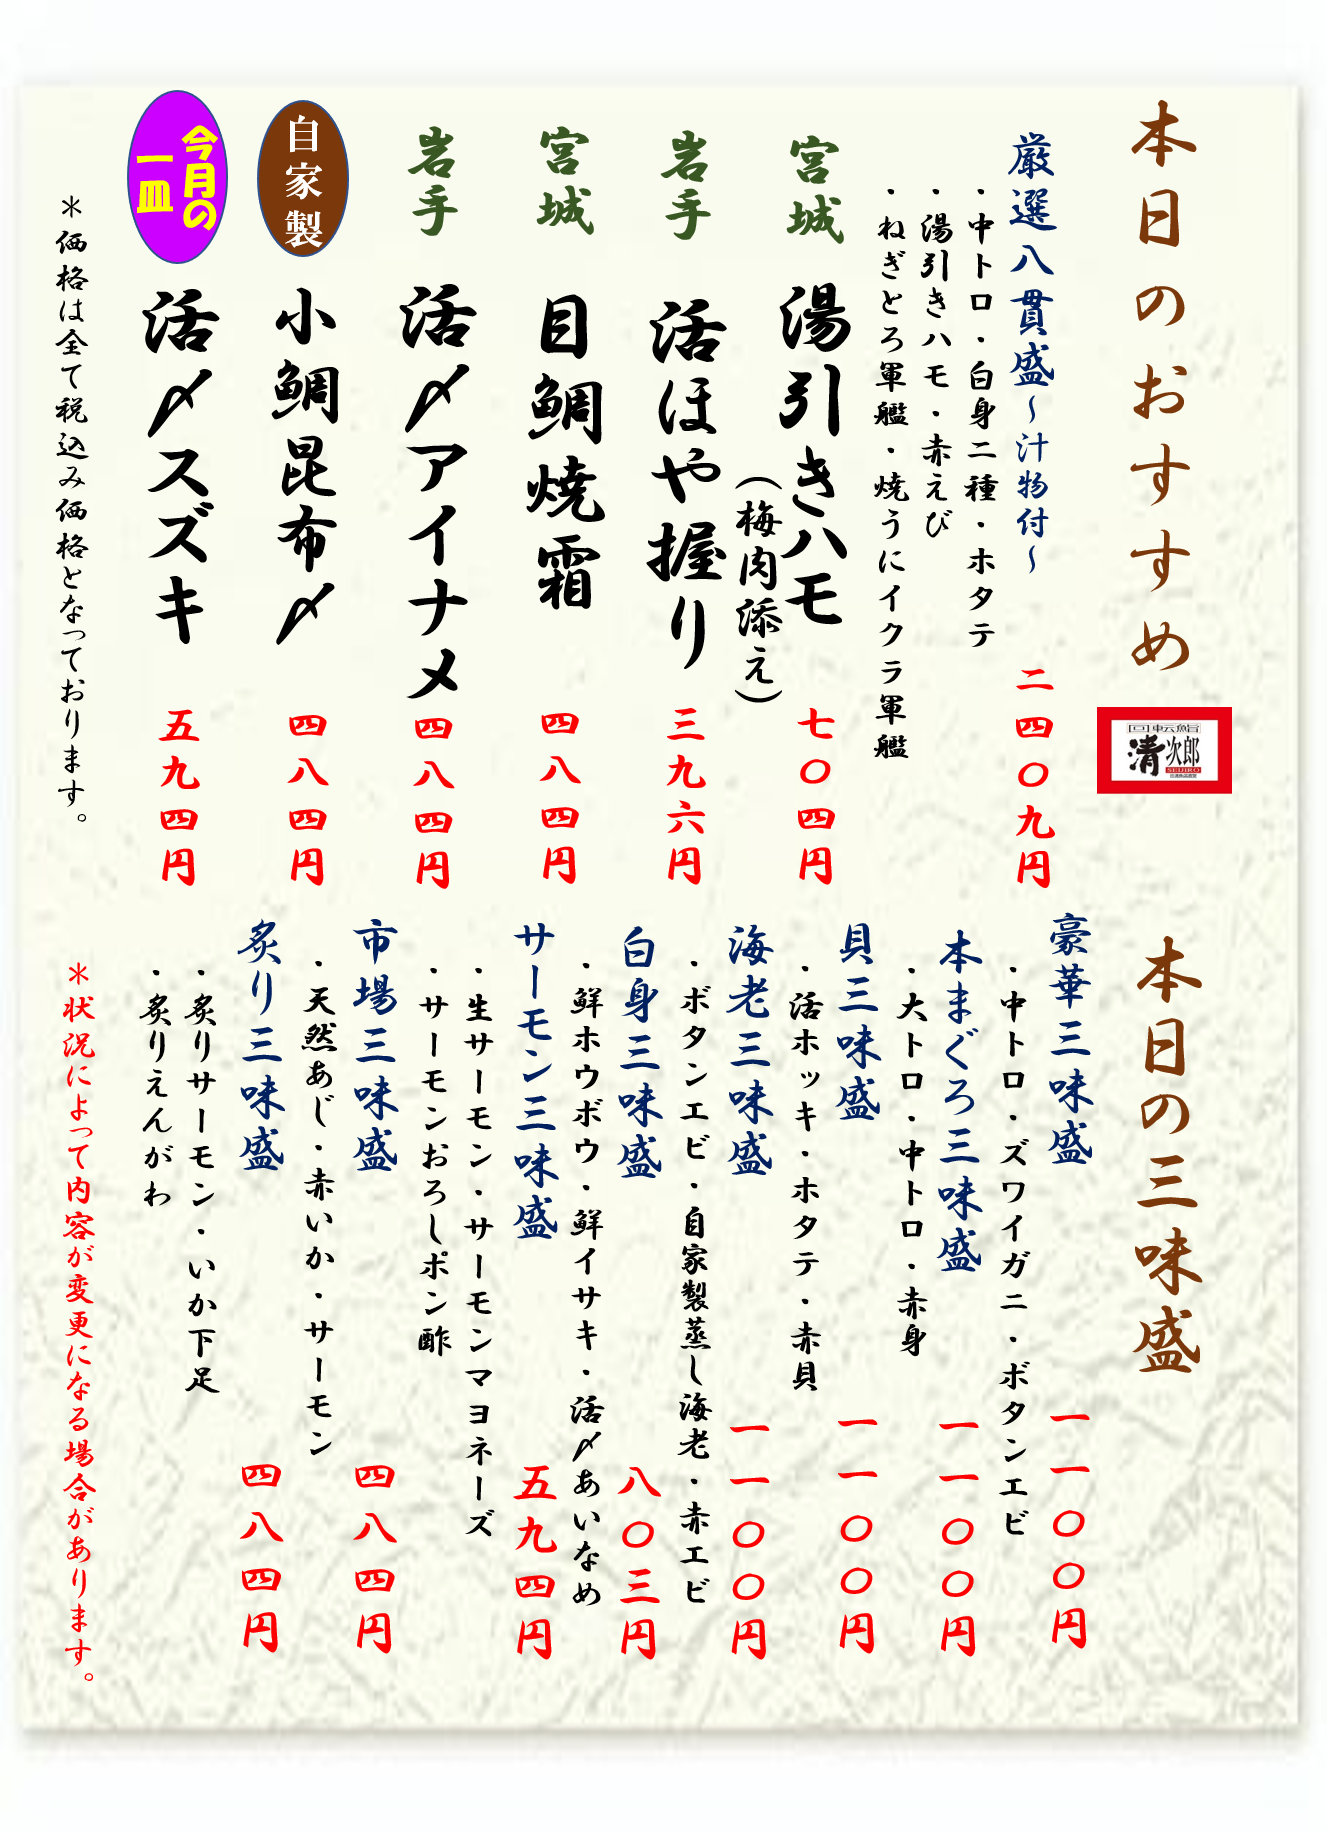 本日のおすすめ
回転鮨
清次郎
SEIJIRO
厳選八貫盛～汁物付～
二四〇九円
・中トロ・白身二種・ホタテ
・湯引きハモ・赤えび
・ねぎとろ軍艦・焼うにイクラ軍艦
宮城
湯引きハモ
(梅肉添え)
七〇四円
岩手
活ほや握り
三九六円
宮城
目鯛焼霜
四八四円
岩手
活〆アイナメ
四八四円
自家製
小鯛昆布〆
四八四円
今月の
一皿
活〆スズキ
五九四円
＊価格は全て税込み価格となっております。
本日の三味盛
豪華三味盛
一一〇〇円
・中トロ・ズワイガニ・ボタンエビ
本まぐろ三味盛
一一〇〇円
・大トロ・中トロ・赤身
貝三味盛
一一〇〇円
・活ホッキ・ホタテ・赤貝
海老三味盛
一一〇〇円
・ボタンエビ・自家製蒸し海老・赤エビ
白身三味盛
八〇三円
・鮮ホウボウ・鮮イサキ・活〆あいなめ
サーモン三味盛
五九四円
・生サーモン・サーモンマヨネーズ
・サーモンおろしポン酢
市場三味盛
四八四円
・天然あじ・赤いか・サーモン
炙り三味盛
四八四円
・炙りサーモン・いか下足
・炙りえんがわ
＊状況によって内容が変更になる場合があります。